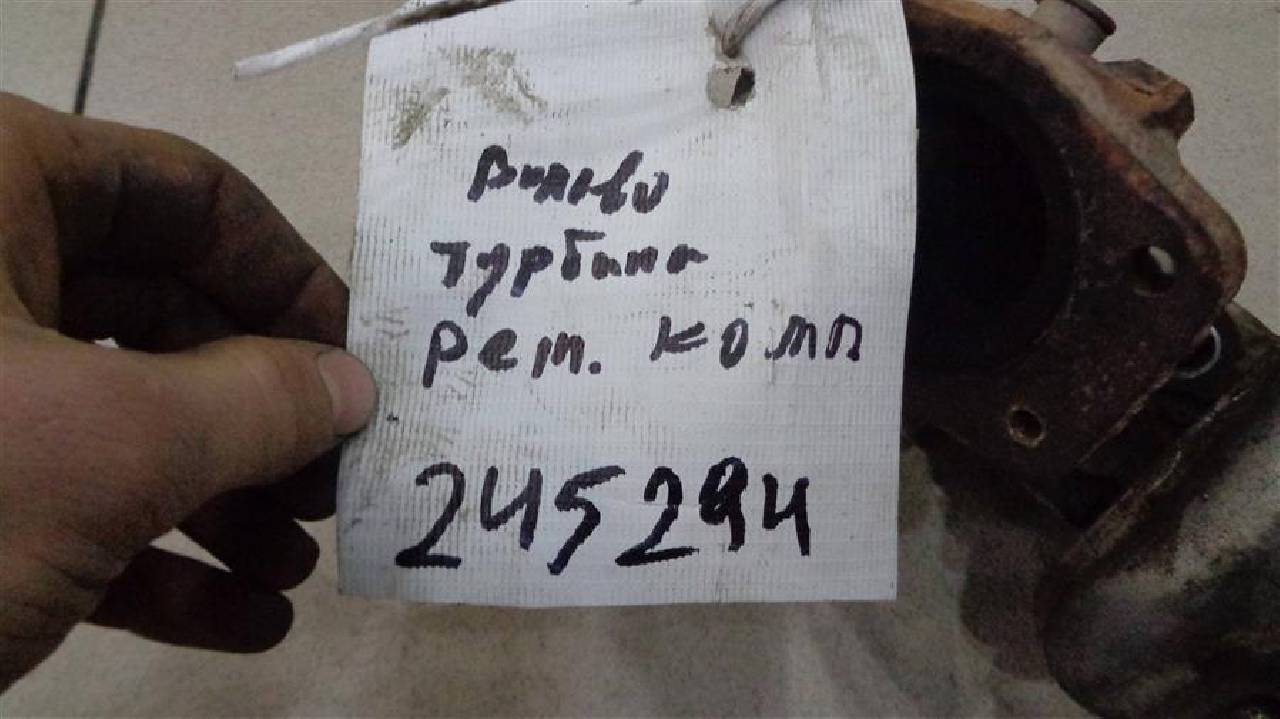 турбина
рем. комп
245294